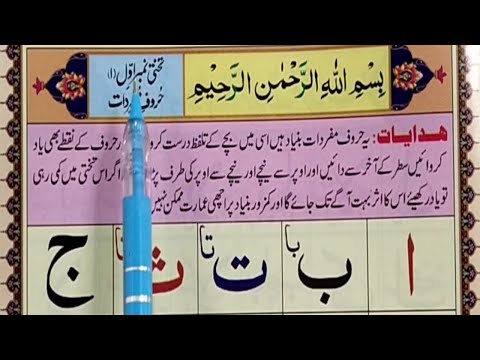 بِسْمِ اللهِ الرَّحْمٰنِ الرَّحِيْمِ
تختی نمبر اوّل (۱)
حُروفِ دات
ھدایات: یہ حروف مفردات بنیاد ہیں اسی میں بچے کے تلفظ درست کرو حروف کے نقطے بھی یاد
کروائیں سطر کے آخر سے دائیں اور اوپر سے نیچے اور نیچے سے اوپر کی طرف اگر اس تختی میں کمی رہی
تو یاد رکھیئے اس کا اثر بہت آگے تک جائے گا اور کمزور بنیاد پر اچھی عمارت ممکن نہیں
ا ب با ت تا ث ج